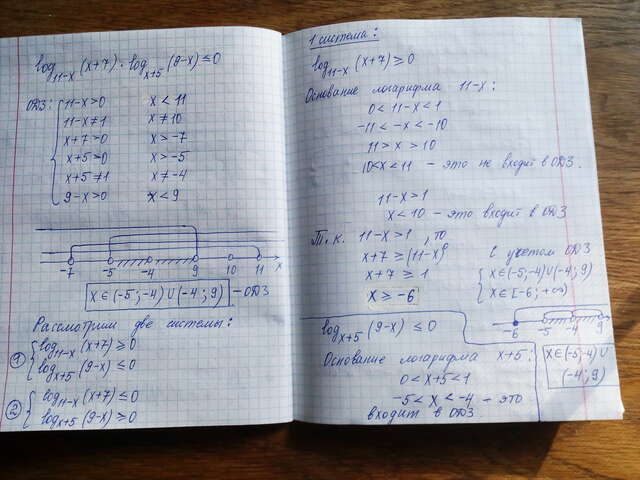 log₁₁₋ₓ(x+7) · logₓ₊₅(9-x) ≤ 0
ОДЗ: { 11-x>0 x < 11
11-x≠1 x ≠ 10
x+7>0 x > -7
x+5>0 x > -5
x+5≠1 x ≠ -4
9-x>0 x < 9
-7 -5 -4 9 10 11 x
x∈(-5;-4)∪(-4;9) - ОДЗ
Рассмотрим две системы:
① { log₁₁₋ₓ(x+7) ≥ 0
logₓ₊₅(9-x) ≤ 0
② { log₁₁₋ₓ(x+7) ≤ 0
logₓ₊₅(9-x) ≥ 0
1 система:
log₁₁₋ₓ(x+7) ≥ 0
Основание логарифма 11-x:
0 < 11-x < 1
-11 < -x < -10
11 > x > 10
10 < x < 11 - это не входит в ОДЗ.
11-x > 1
x < 10 - это входит в ОДЗ
Т.к. 11-x > 1, то
x+7 ≥ (11-x)⁰
x+7 ≥ 1
x ≥ -6
С учетом ОДЗ
{ x∈(-5;-4)∪(-4;9)
x∈[-6;+∞)
-6 -5 -4 9
x∈(-5;-4)∪
(-4;9)
logₓ₊₅(9-x) ≤ 0
Основание логарифма x+5:
0 < x+5 < 1
-5 < x < -4 - это
входит в ОДЗ